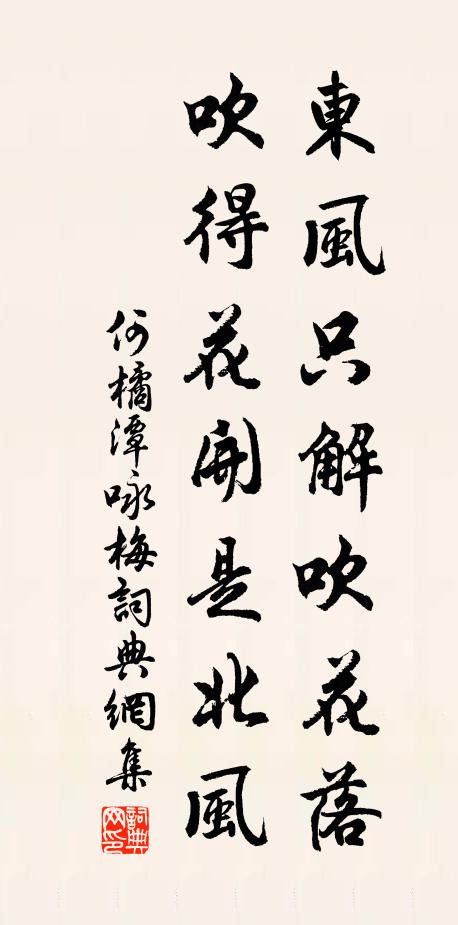 東風只解吹花落
吹得花開是北風
何橘潭咏梅詞典網集
詞典網印